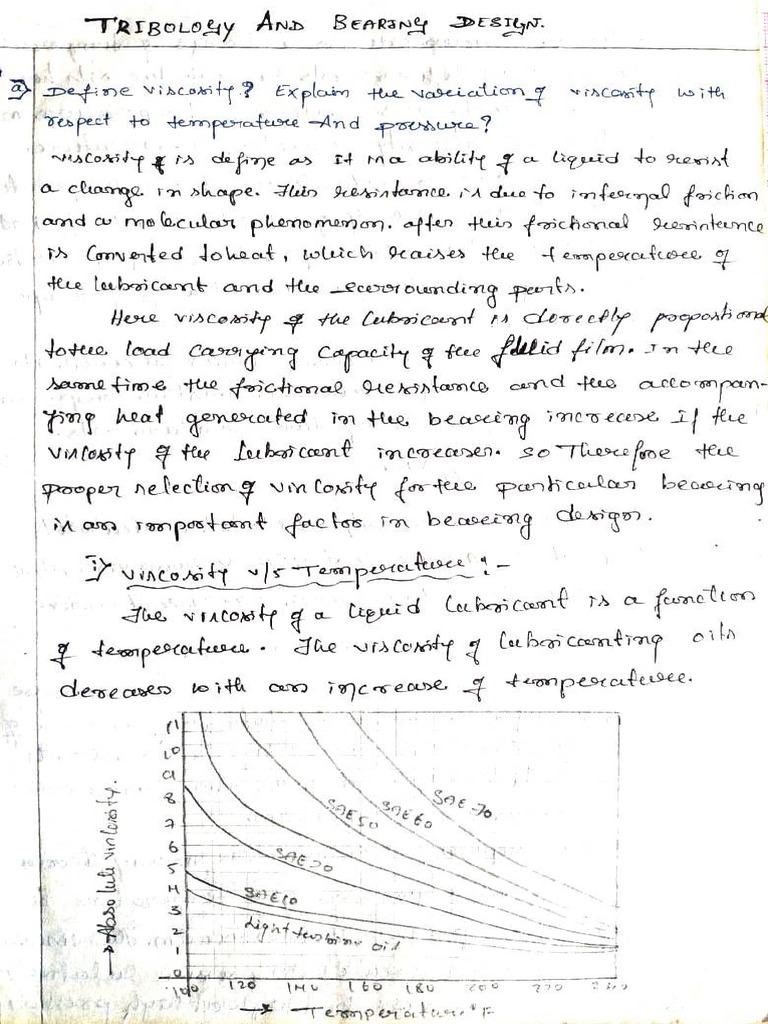 TRIBOLOGY AND BEARING DESIGN.
a) Define viscosity? Explain the variation of viscosity with
respect to temperature And pressure?
viscosity is define as it in a ability of a liquid to resist
a change in shape. This resistance is due to internal friction
and a molecular phenomenon. after this frictional resistance
is converted to heat, which raises the temperature of
the lubricant and the surrounding parts.
Here viscosity of the lubricant is directly propostional
to the load carrying capacity of the fluid film. In the
same time the frictional resistance and the accompan-
ying heat generated in the bearing increase If the
viscosity of the lubricant increases. so Therefore the
proper selection of viscosity for the particular bearing
is an important factor in bearing design.
i) viscosity v/s Temperature :-
The viscosity of a liquid lubricant is a function
of temperature. The viscosity of lubricanting oils
dereases with an increase of temperature.
11
10
9
8
7
6
5
4
3
2
1
0
→ Absolute viscosity.
SAE 70
SAE 60
SAE 50
SAE 20
SAE 10
Light turbine oil
100 120 140 160 180 200 220 240
→ Temperature °F